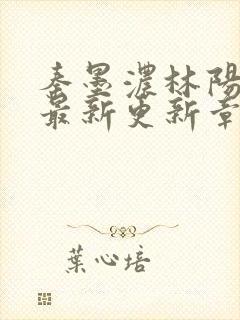 秦墨濃林陽
最新更新章
葉心培